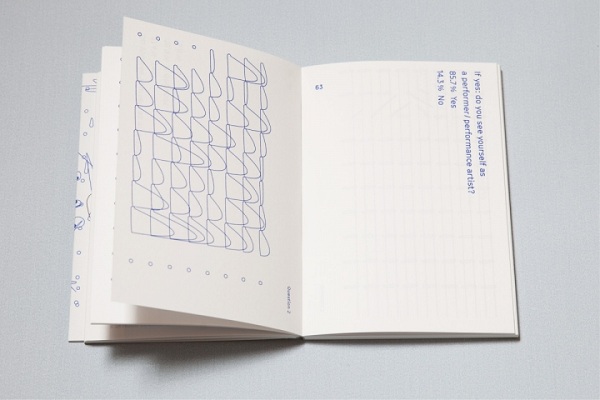 Question 2
63
If yes: do you see yourself as
a performer / performance artist?
85.7 % Yes
14.3 % No